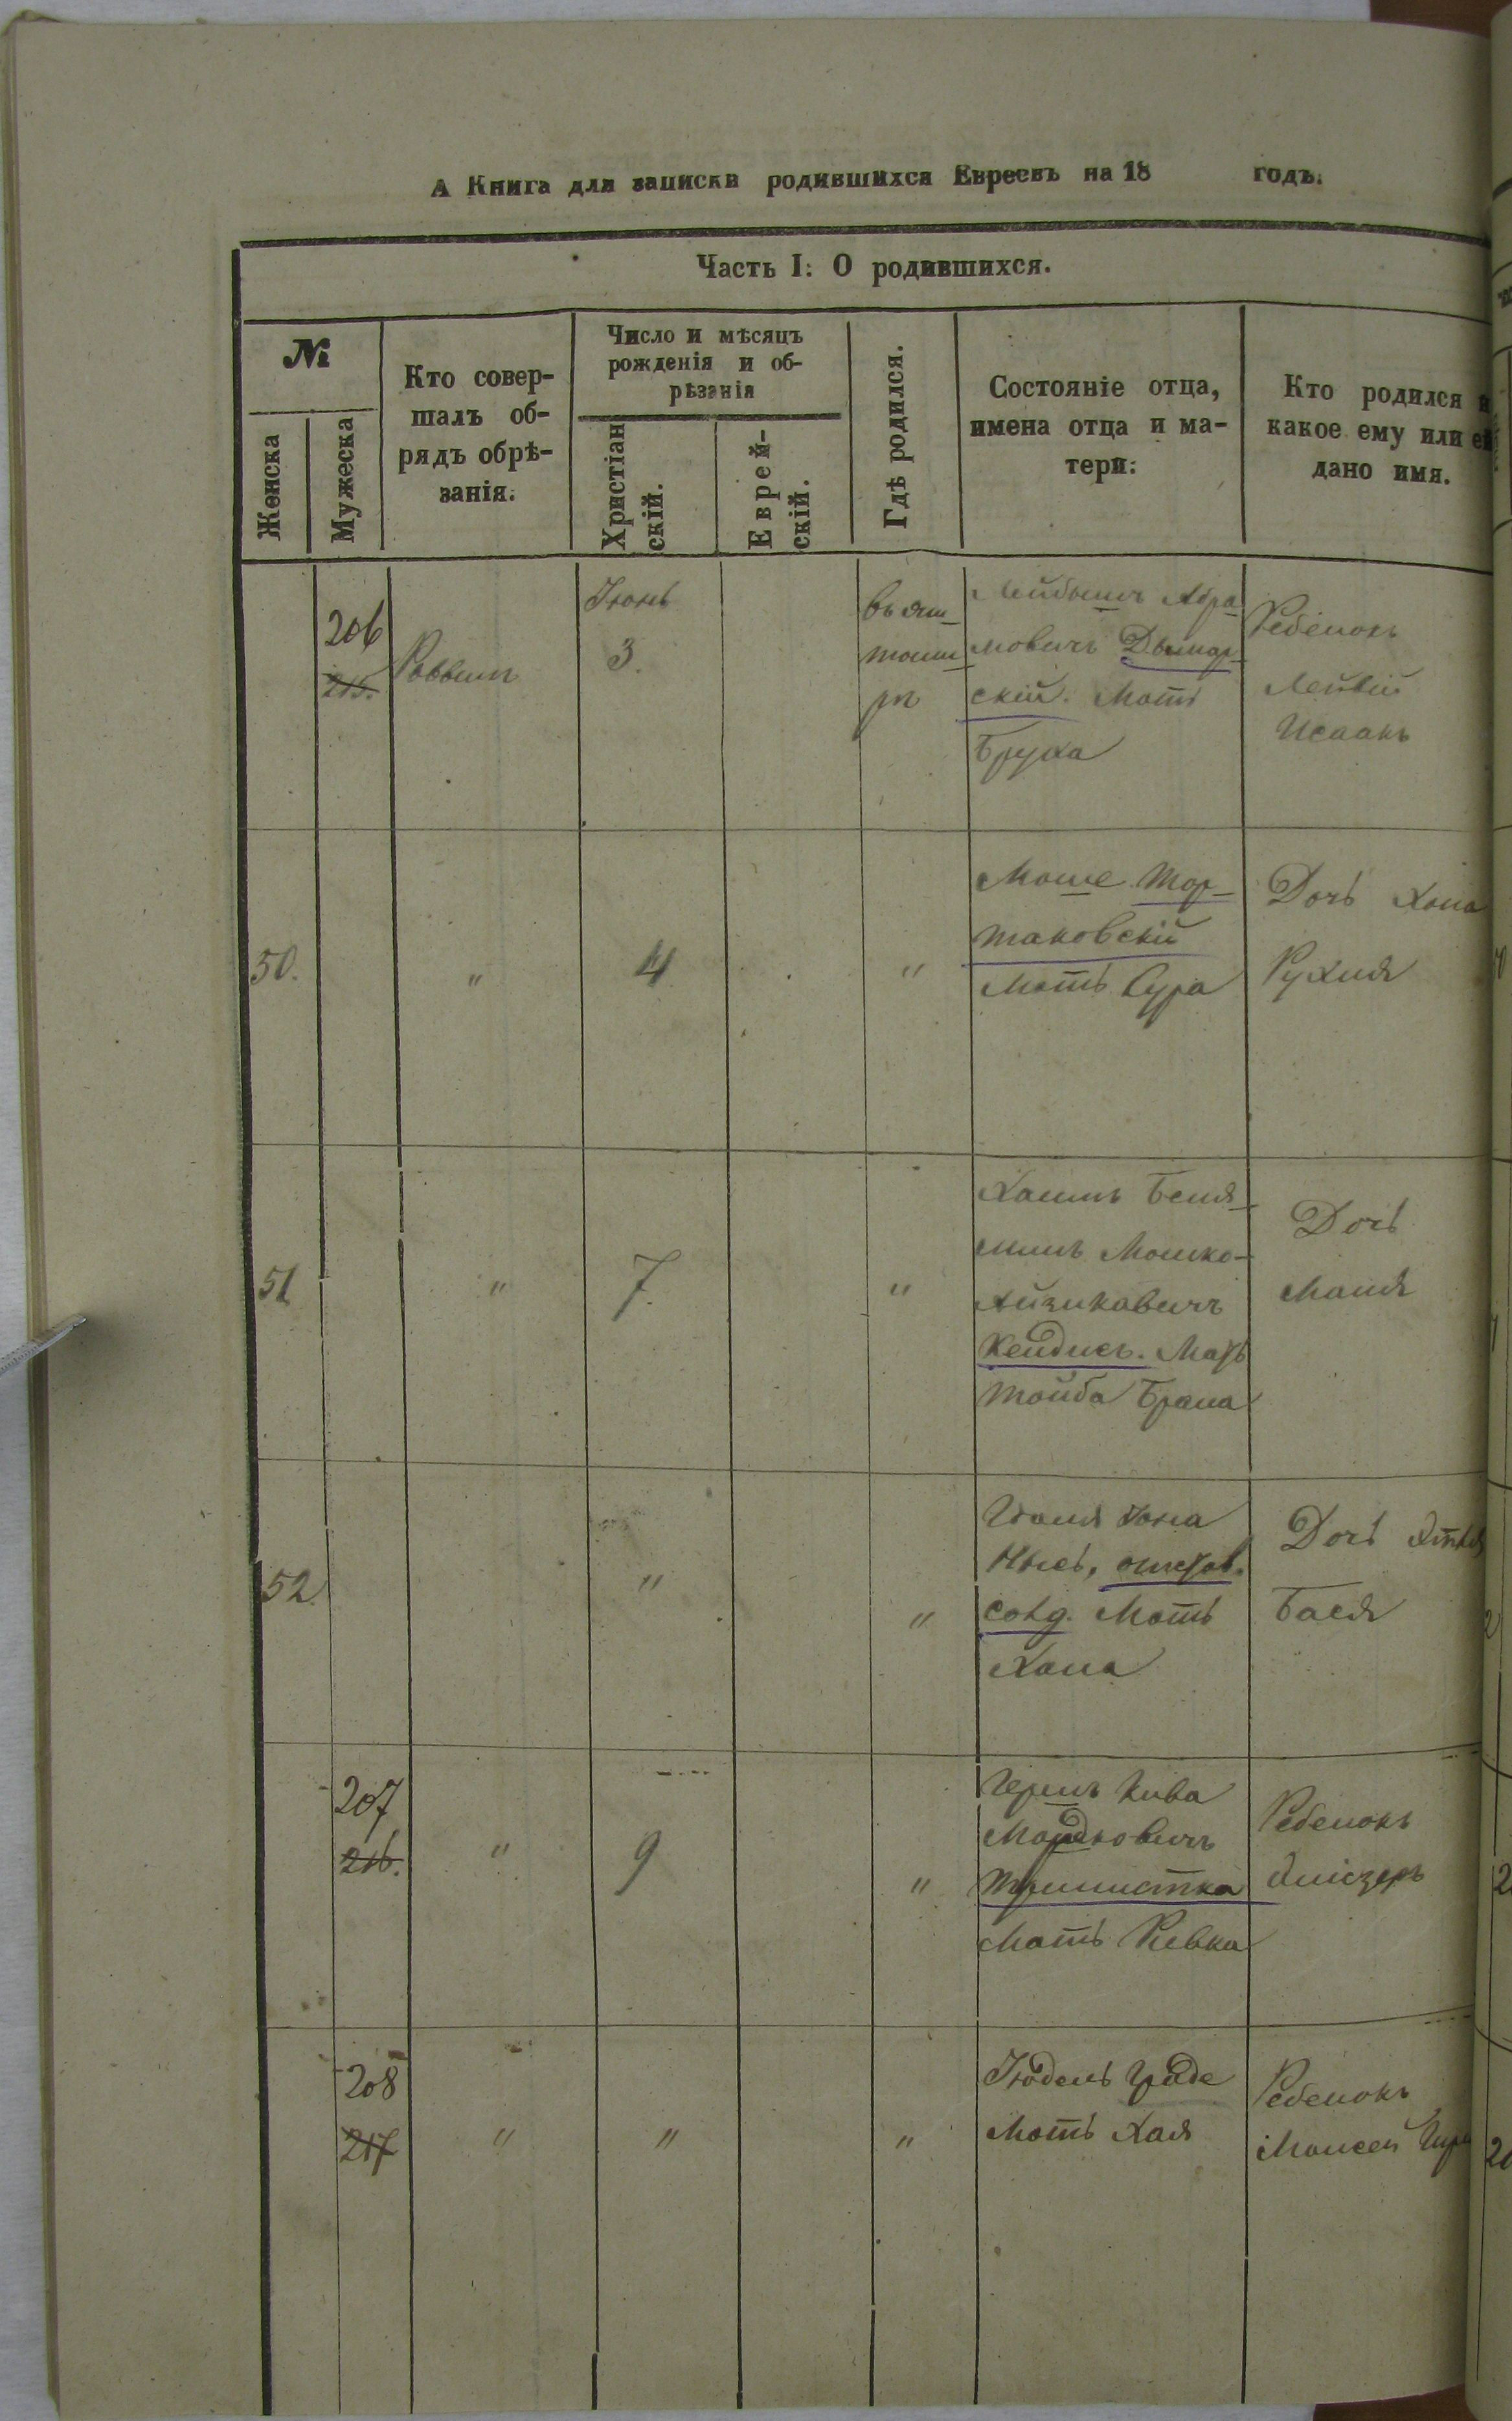 А Книга для записки родившихся Евреевъ на 18 годъ.
Часть I: О родившихся.
№
Женска
Мужеска
Кто совер-
шалъ об-
рядъ обрѣ-
занія.
Число и мѣсяцъ
рожденія и об-
рѣзанія
Христіан
скій.
Еврей-
скій.
Гдѣ родился.
Состояніе отца,
имена отца и ма-
тери:
Кто родился и
какое ему или ей
дано имя.
206
215.
Раввинъ
Іюнь
3.
въ
Лейбышъ Абра
мовичъ Дымар
скій. Мать
Бруха
Ребенокъ
Лейвій
Исаакъ
50.
"
4
"
Моше Тор-
таковскій
Мать Сура
Дочь Хана
Рухля
51
"
7.
"
Хаимъ Беня-
минъ Мошко-
Айзиковичъ
Кейдисъ. Мать
Тойба Брана
Дочь
Маня
52.
"
"
Мать
Хана
Дочь
Бася
207
216.
"
9
"
Мордковичъ
Мать Ривка
Ребенокъ
208
217
"
"
"
Юдель
Мать Хая
Ребенокъ
Моисей